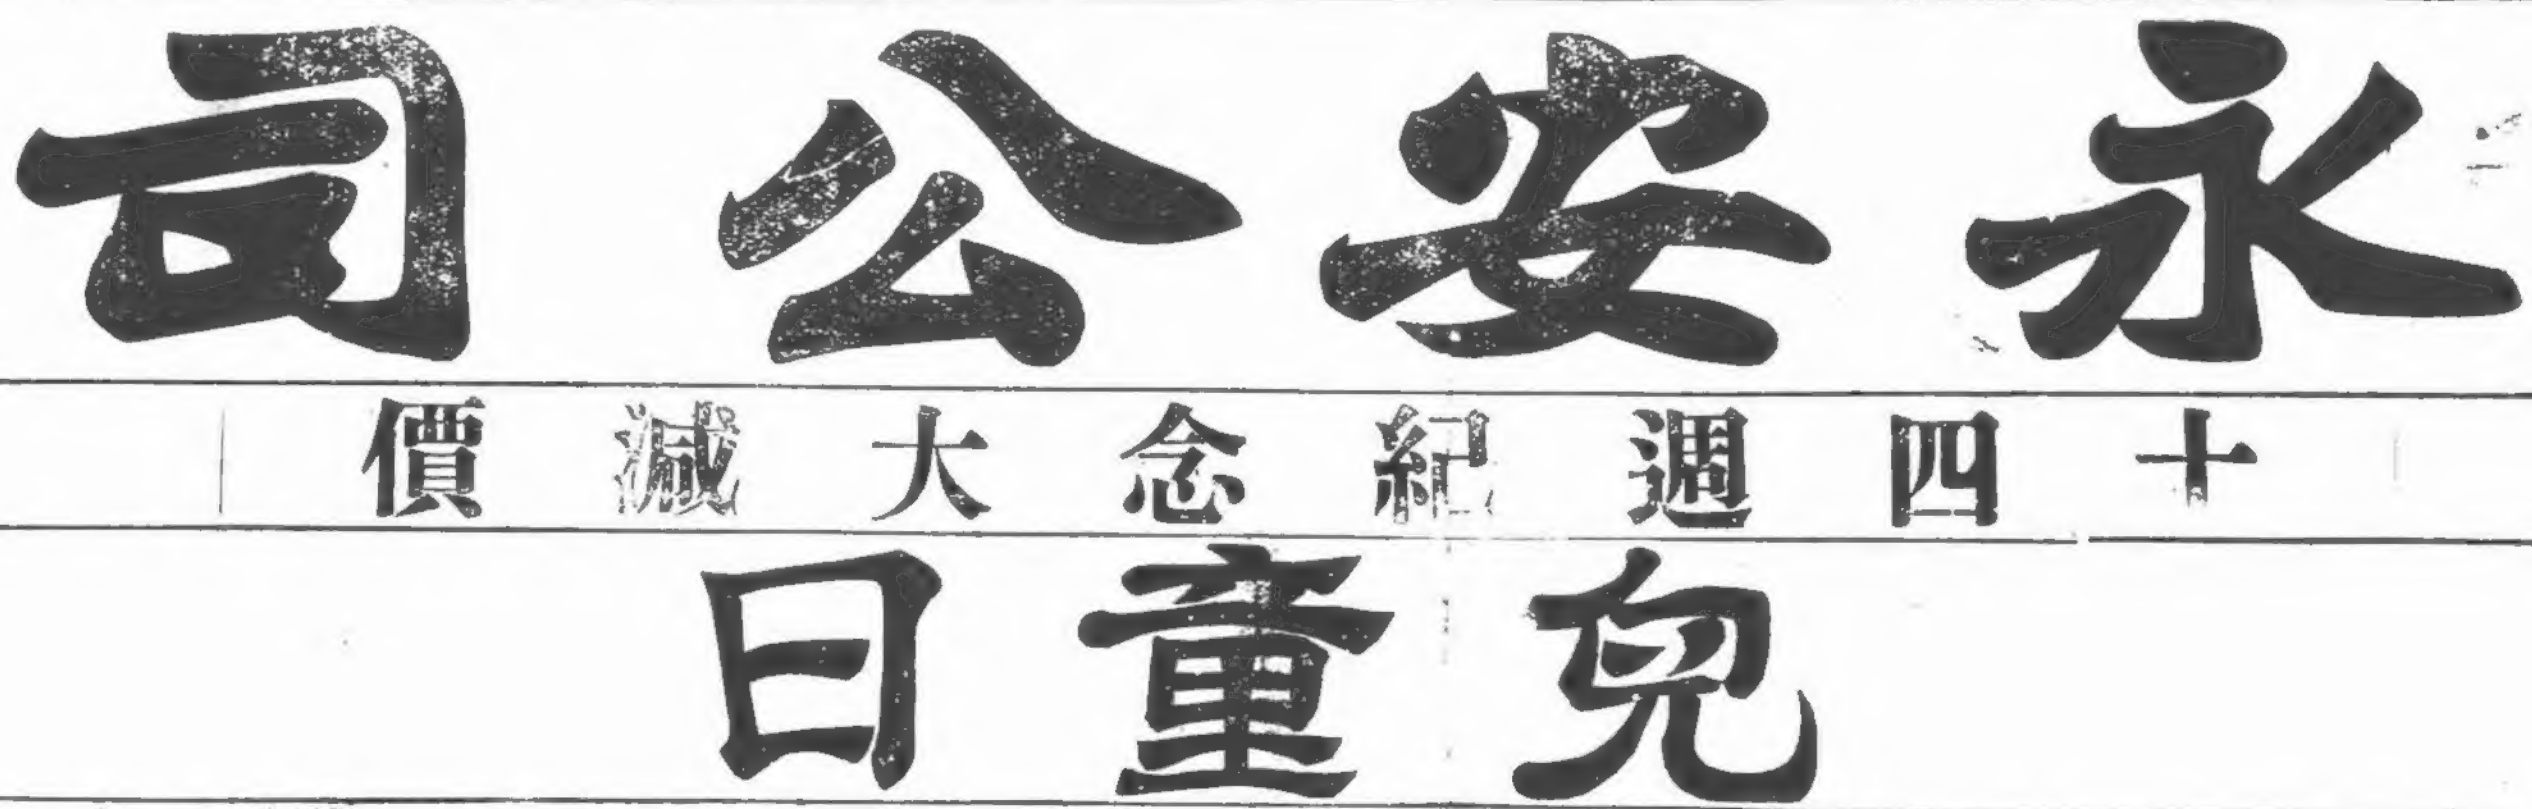 永安公司
十四週紀念大減價
兒童日